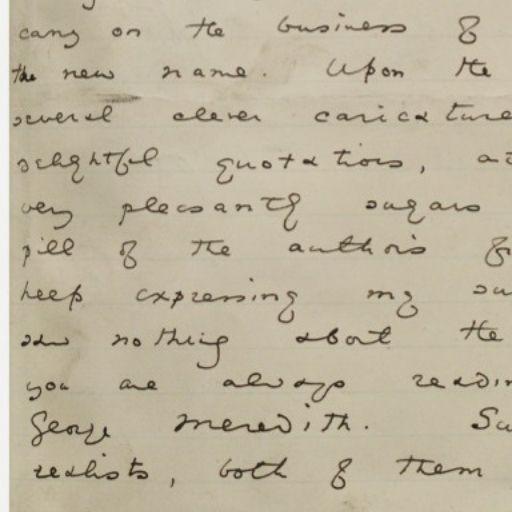 carry on the business of
the new name. Upon the
several clever caricature
delightful quotations, at
very pleasantly sugars
pill of the author's
keep expressing my su
saw nothing about the
you are always readin
George Meredith. Su
realists, both of them